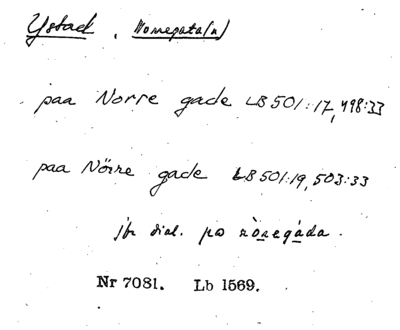 Ystad. Norregata(n)
paa Norre gade LB 501:17, 498:33
paa Nörre gade LB 501:19, 503:33
jfr dial. po nòregáda.
Nr 7081. Lb 1569.